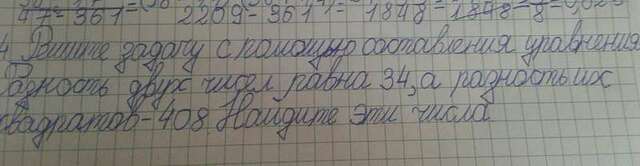 47² - 361 = 2209 - 361 = 1848 = 1848
4. Решите задачу с помощью составления уравнения
Разность двух чисел равна 34, а разность их
квадратов - 408. Найдите эти числа.